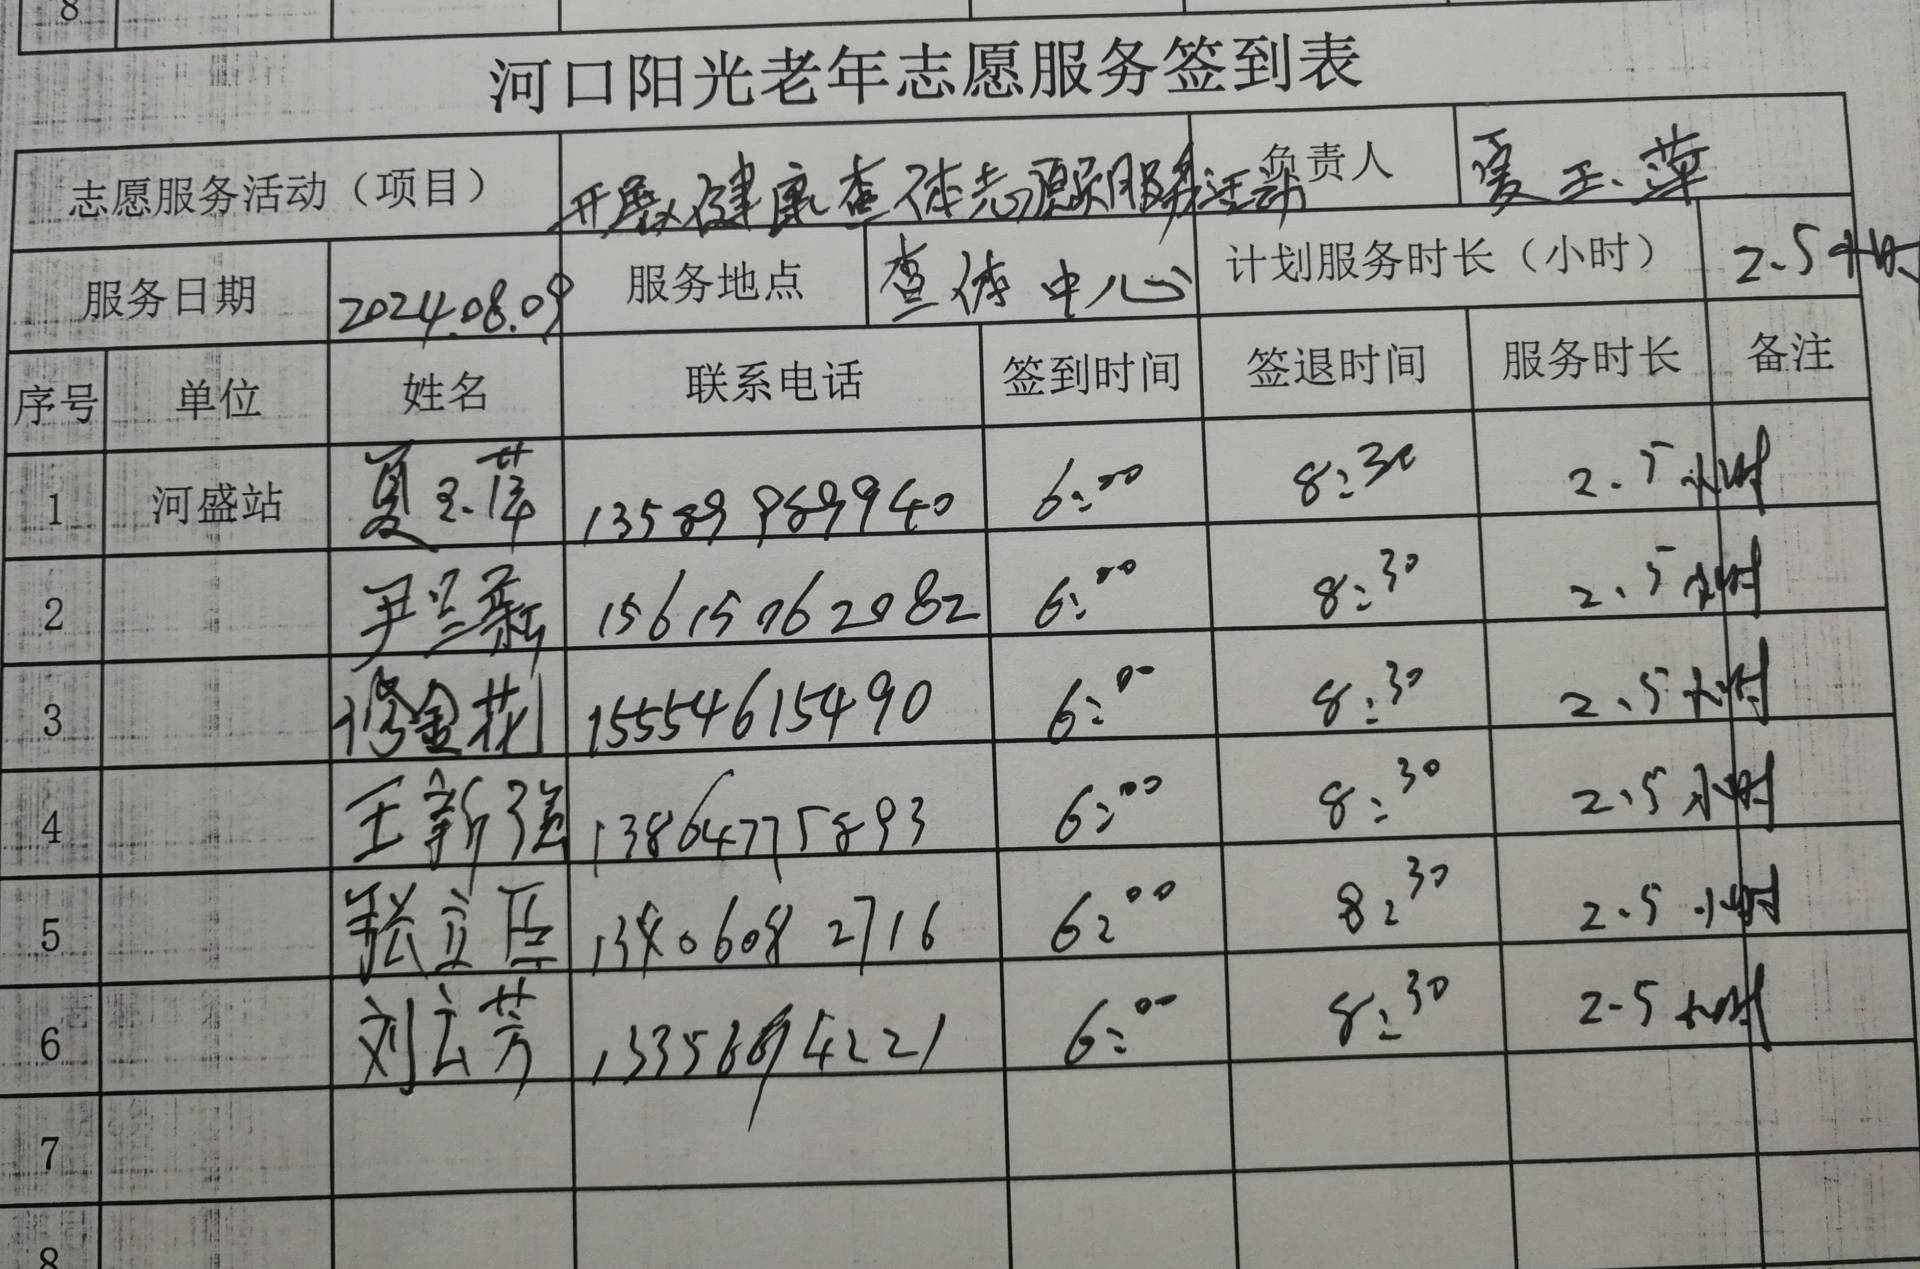 8
河口阳光老年志愿服务签到表
志愿服务活动（项目） 开展健康查体志愿服务活动 负责人 夏玉萍
服务日期 2024.08.09 服务地点 查体中心 计划服务时长（小时） 2.5小时
序号 单位 姓名 联系电话 签到时间 签退时间 服务时长 备注
1 河盛站 夏玉萍 13589989940 6:00 8:30 2.5小时
2 尹兰新 15615762082 6:00 8:30 2.5小时
3 修金花 15554615490 6:00 8:30 2.5小时
4 王新强 13864775893 6:00 8:30 2.5小时
5 张立臣 13406082716 6:00 8:30 2.5小时
6 刘云芳 6:00 8:30 2.5小时
7
8